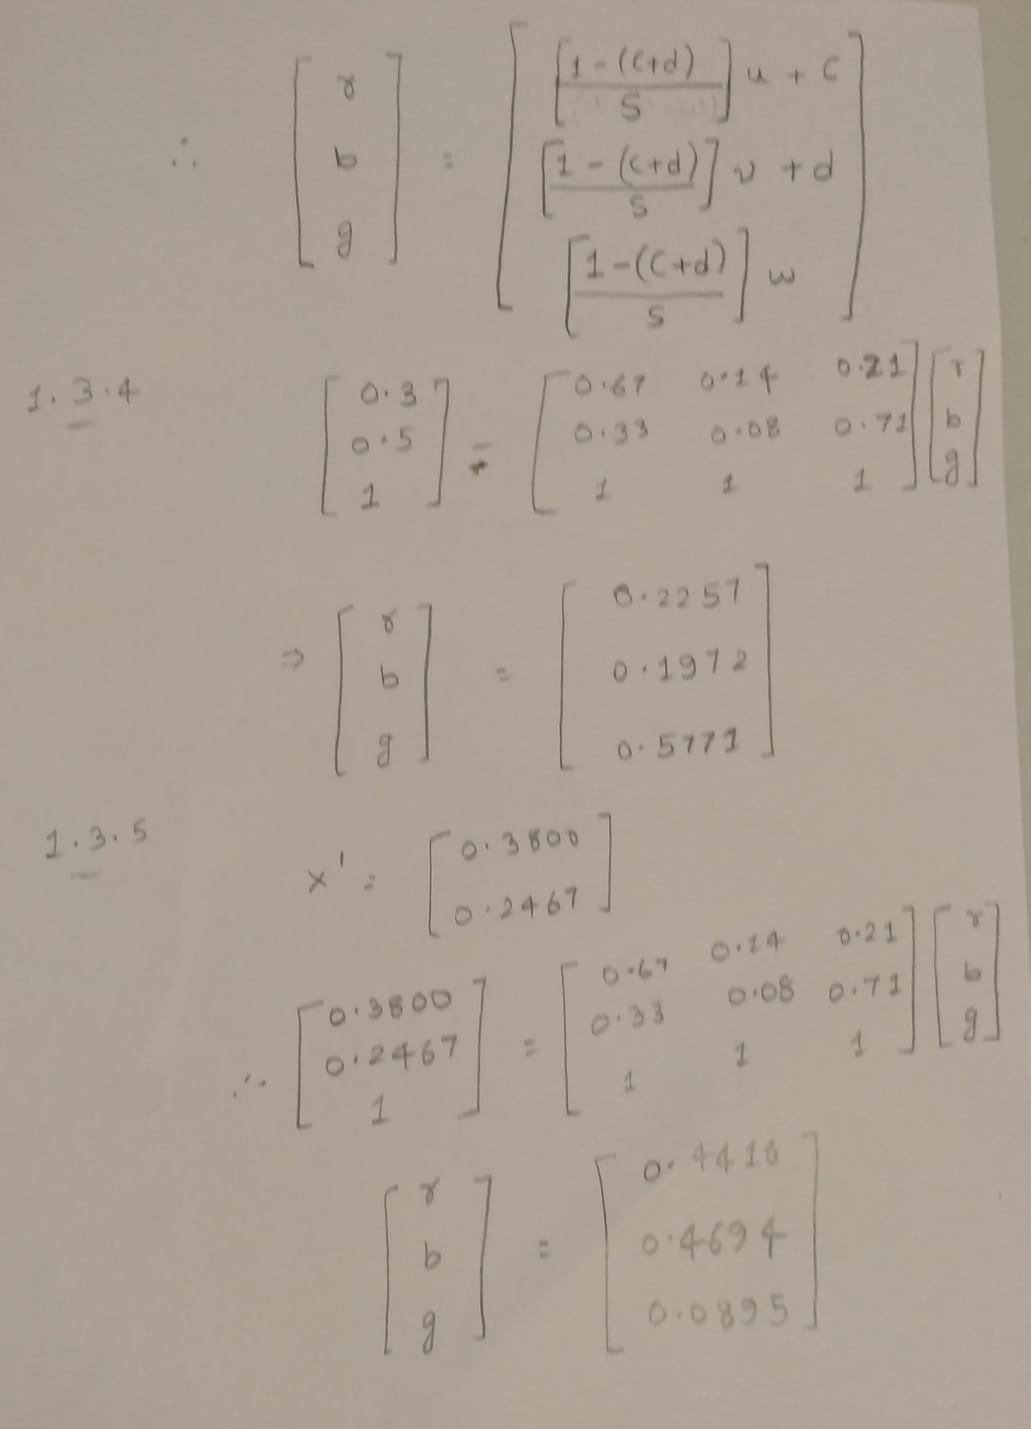 ∴ [r b g] = [ [1-(c+d)/S] u + c
[1-(c+d)/S] v + d
[1-(c+d)/S] w ]
1.3.4 [0.3 0.5 1] = [0.67 0.14 0.21
0.33 0.08 0.71
1 1 1] [r b g]
⇒ [r b g] = [0.2257
0.1972
0.5771]
1.3.5 x' = [0.3800
0.2467]
∴ [0.3800 0.2467 1] = [0.67 0.14 0.21
0.33 0.08 0.71
1 1 1] [r b g]
[r b g] = [0.4410
0.4694
0.0895]